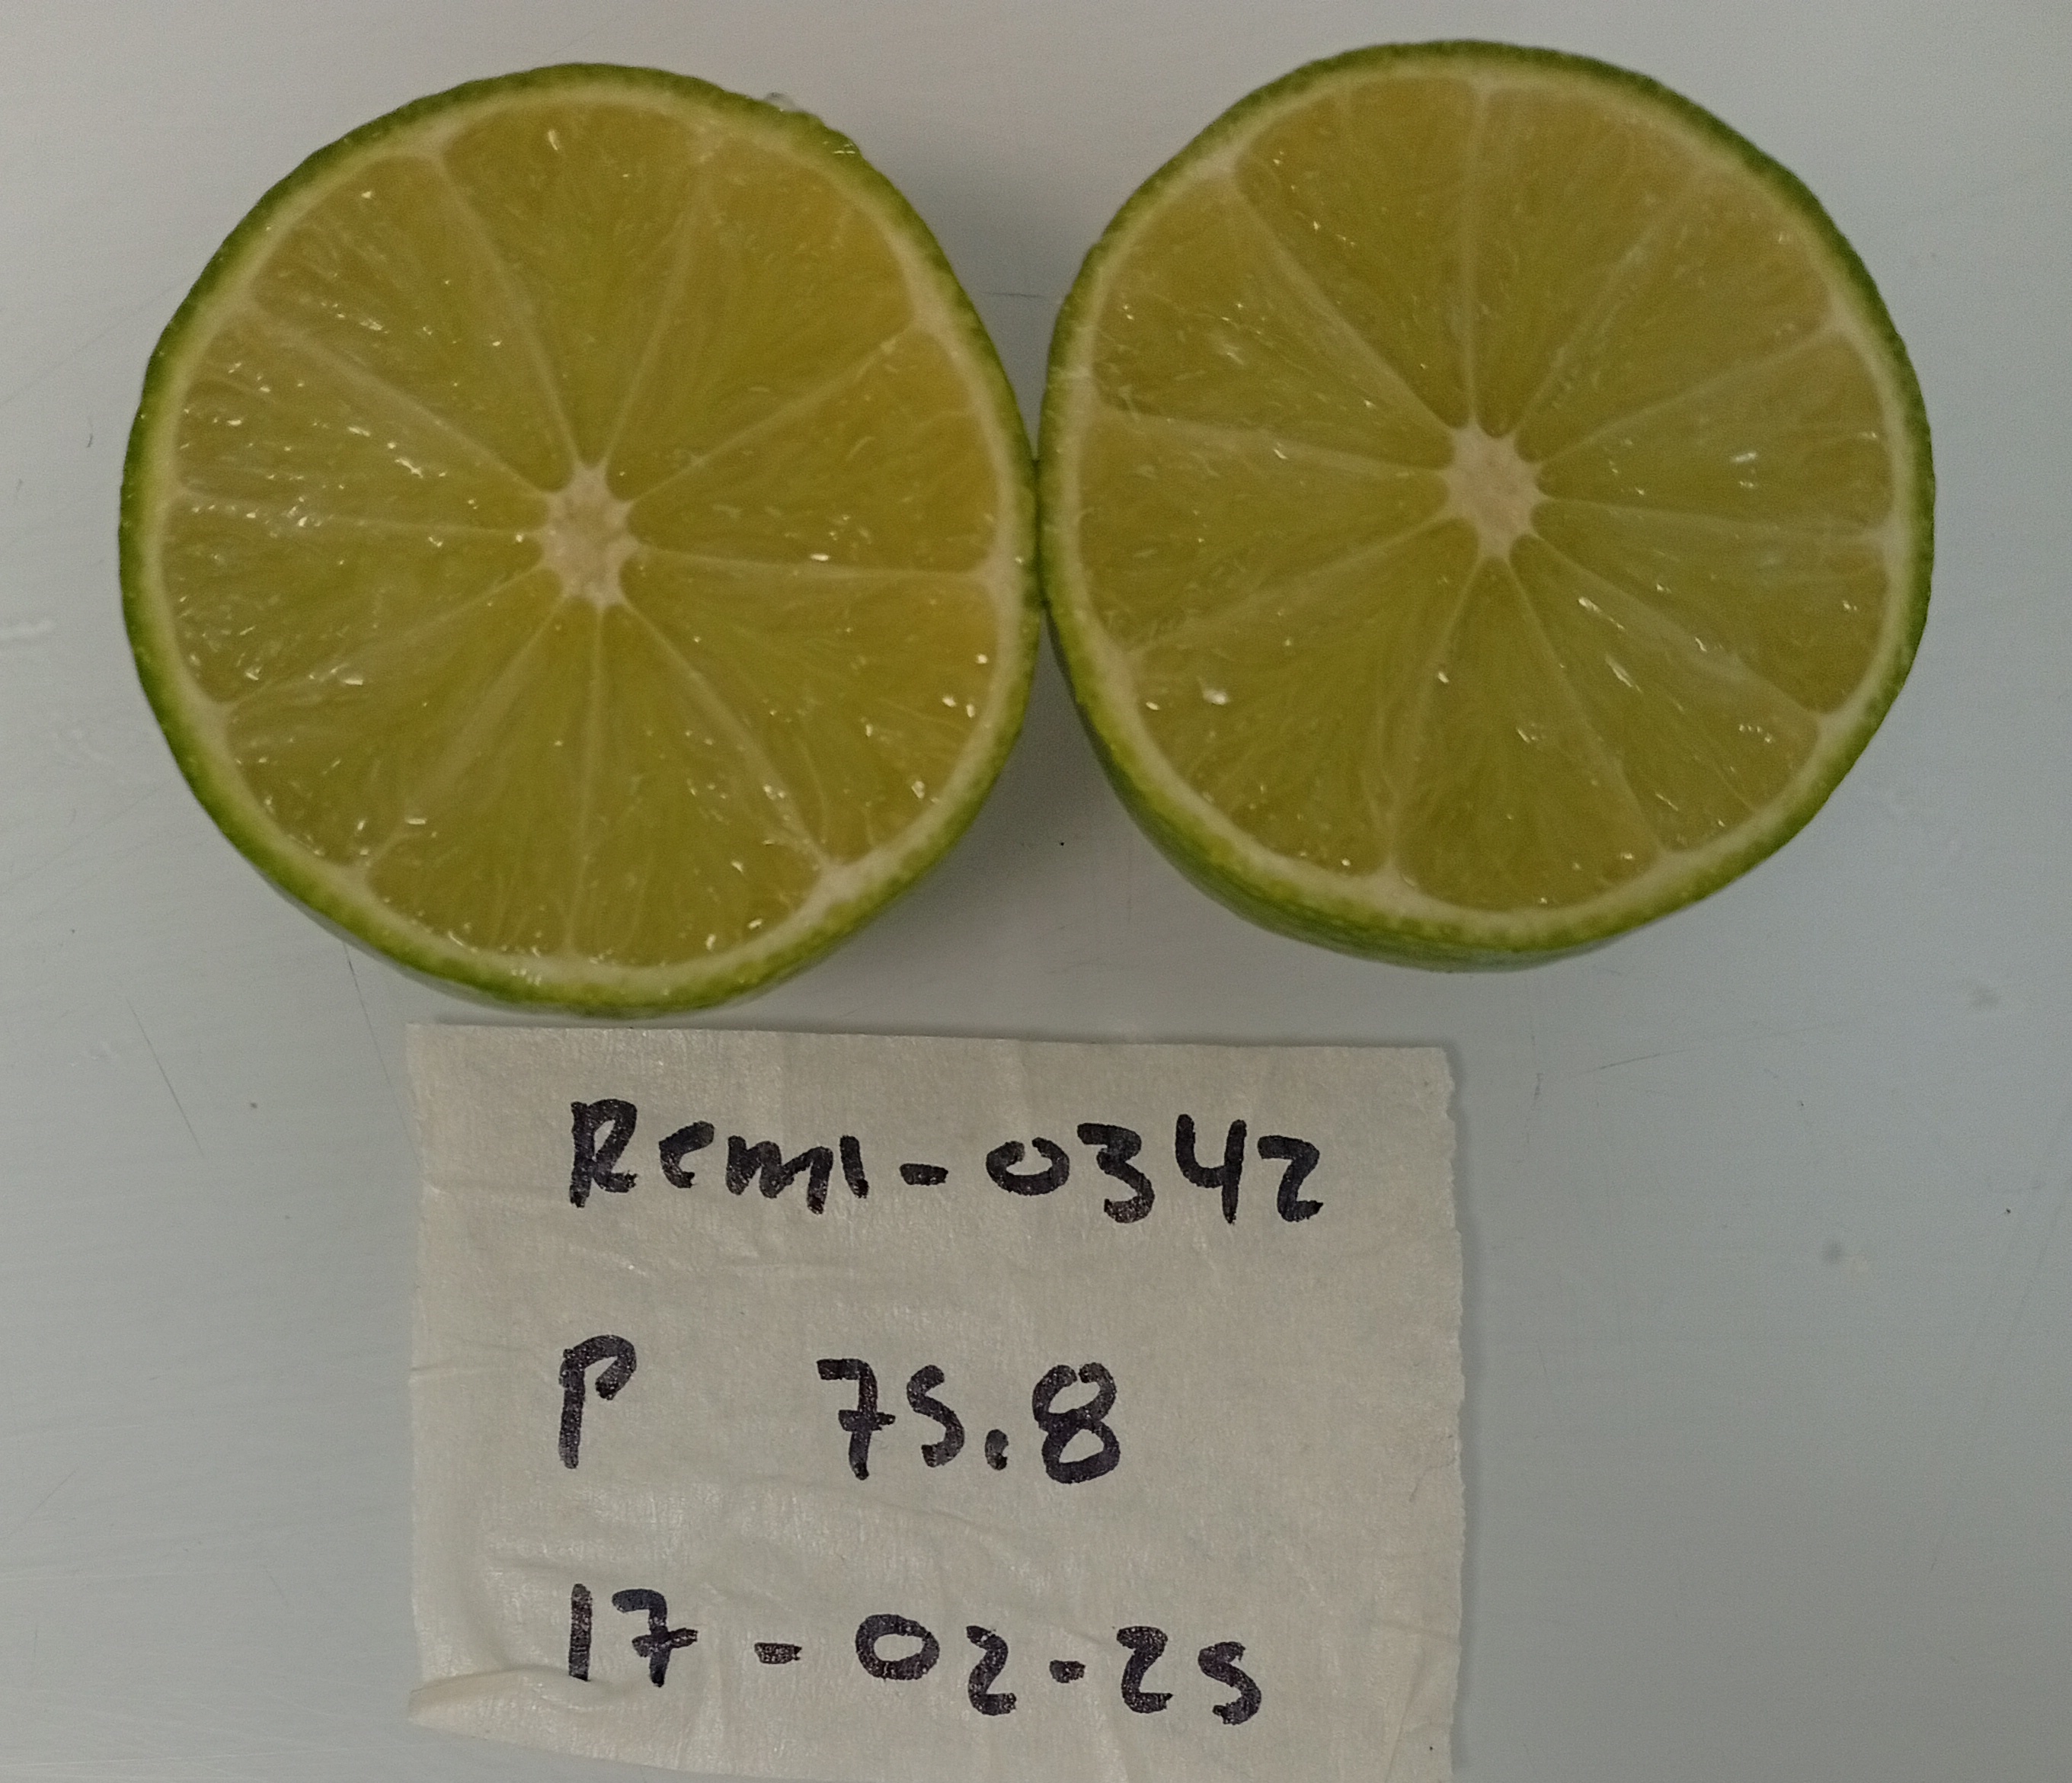 Remi-0342
P 75.8
17-02-25